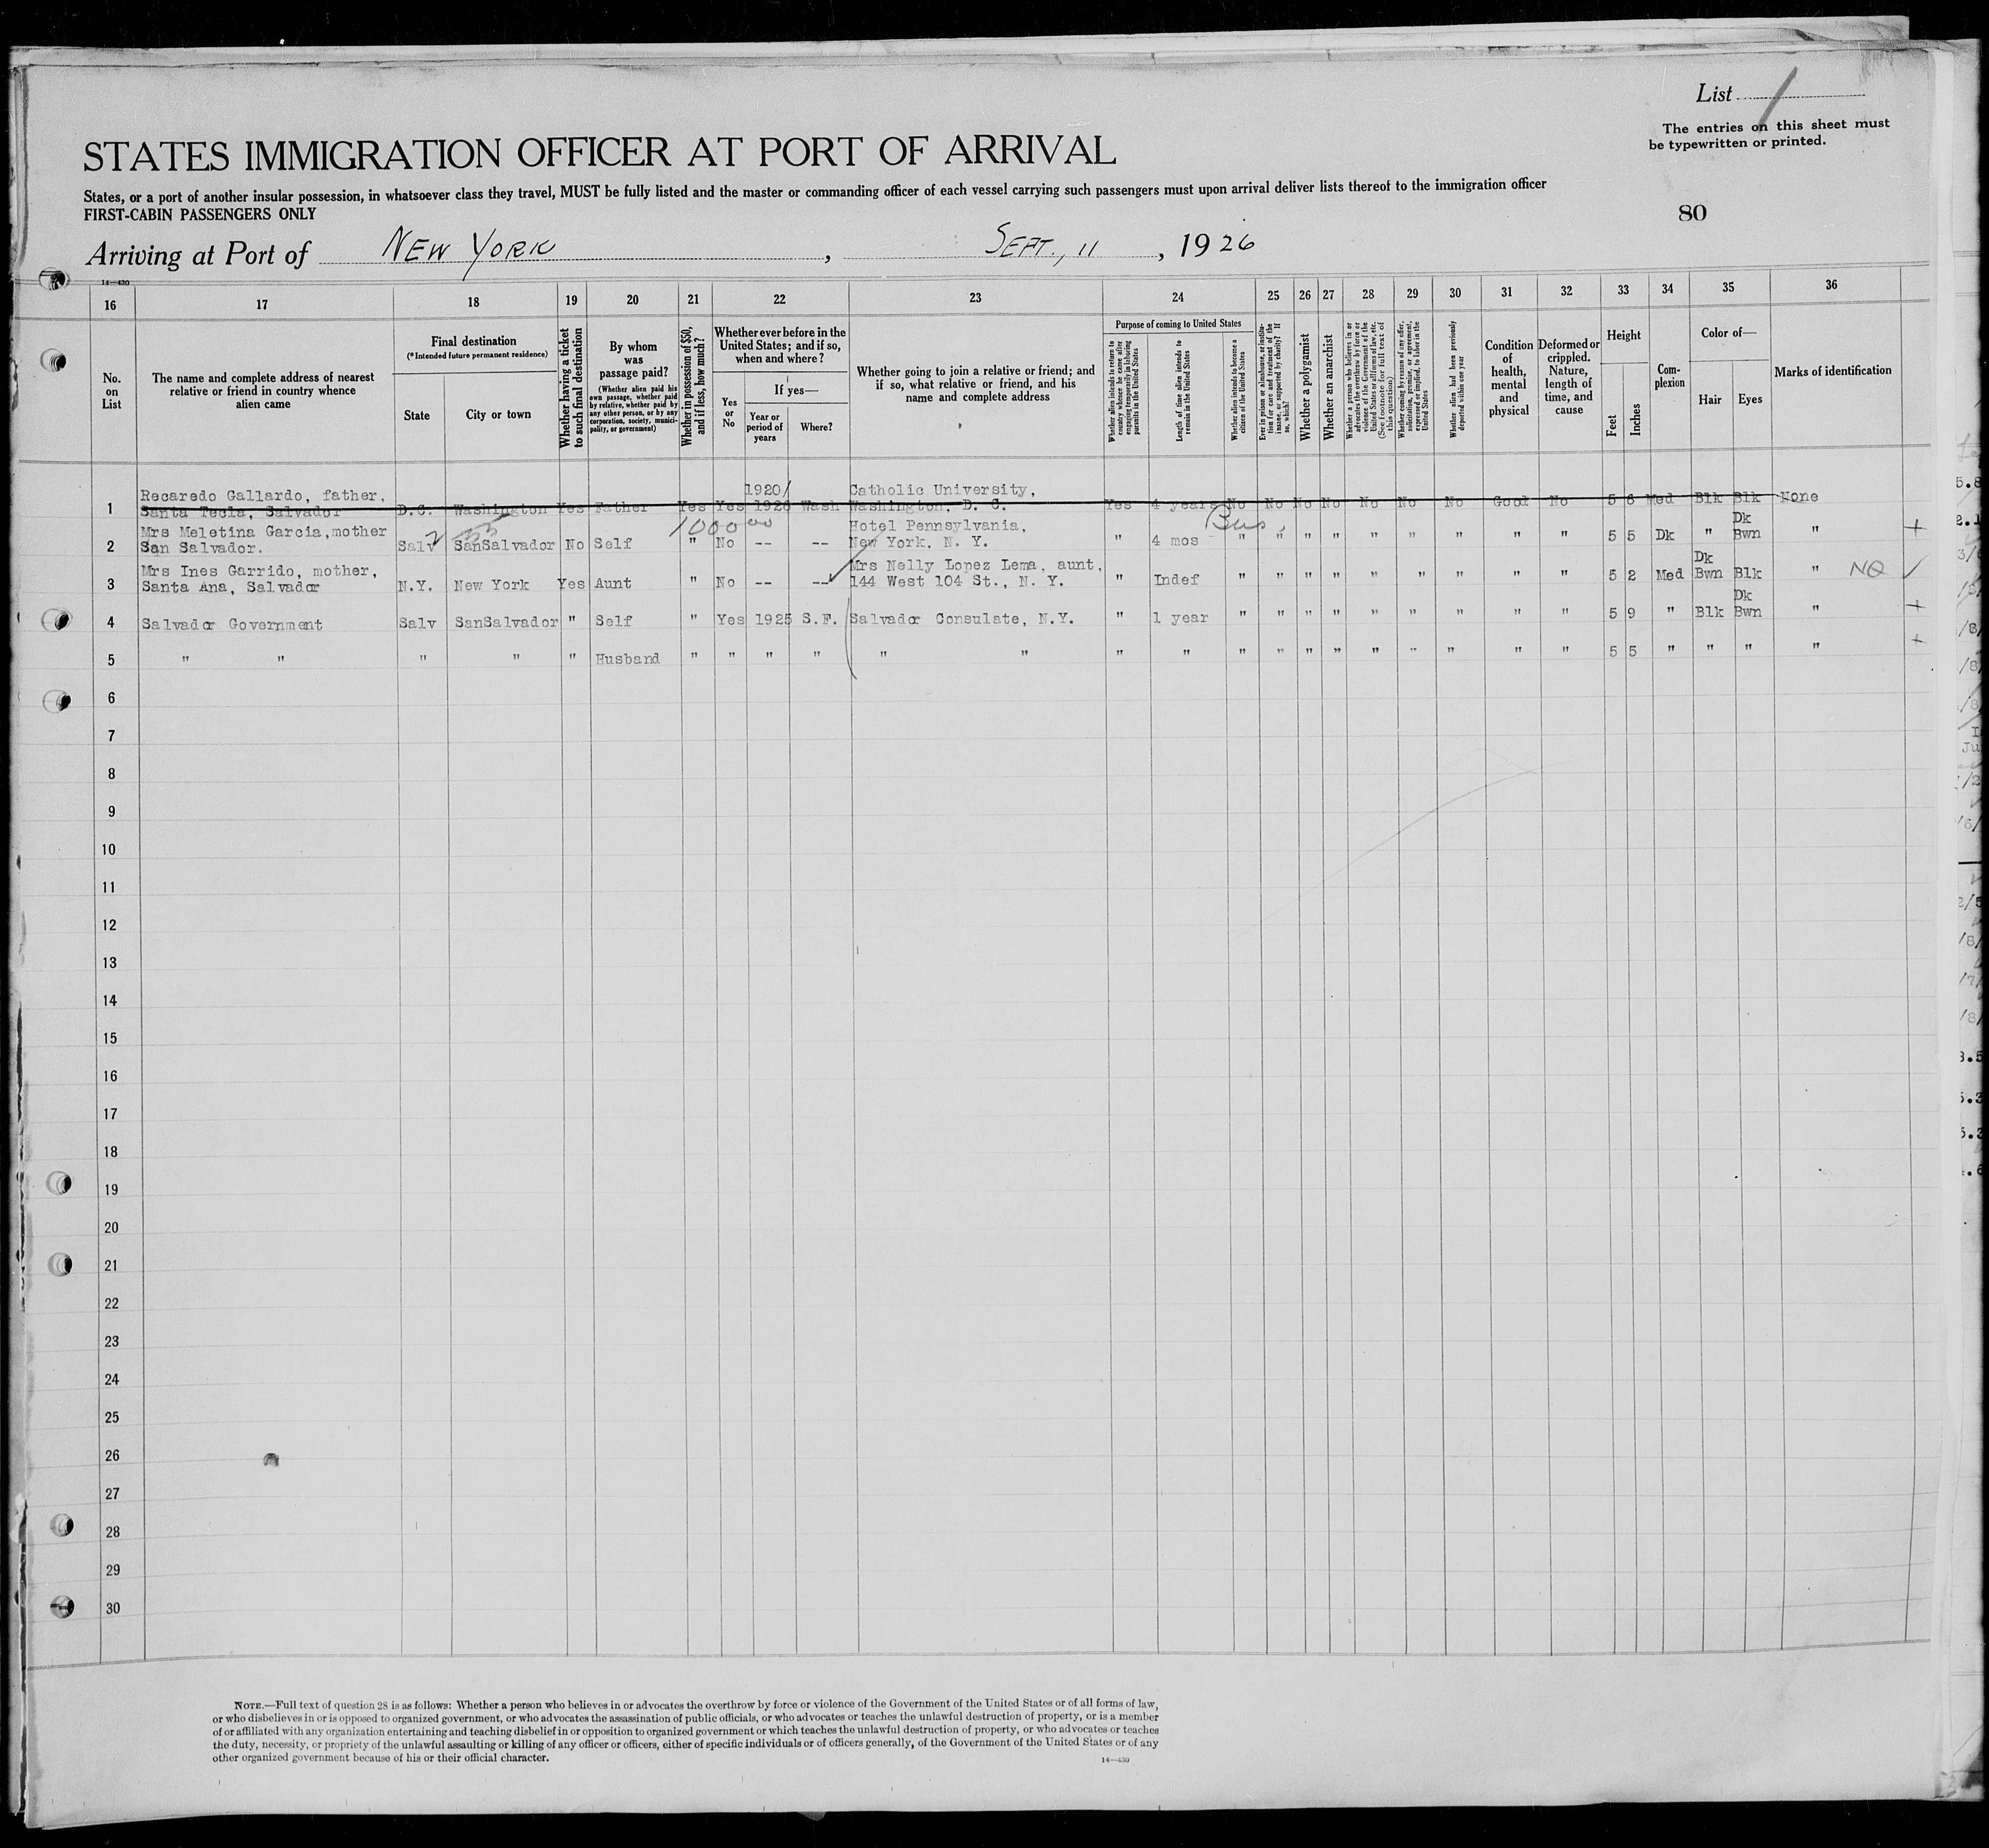 List 1
The entries on this sheet must
be typewritten or printed.
STATES IMMIGRATION OFFICER AT PORT OF ARRIVAL
States, or a port of another insular possession, in whatsoever class they travel, MUST be fully listed and the master or commanding officer of each vessel carrying such passengers must upon arrival deliver lists thereof to the immigration officer
FIRST-CABIN PASSENGERS ONLY
80
Arriving at Port of NEW YORK, SEPT., 11, 1926
14—430
16 17 18 19 20 21 22 23 24 25 26 27 28 29 30 31 32 33 34 35 36
No.
on
List
The name and complete address of nearest
relative or friend in country whence
alien came
Final destination
(*Intended future permanent residence)
State
City or town
Whether having a ticket
to such final destination
By whom
was
passage paid?
(Whether alien paid his
own passage, whether paid
by relative, whether paid by
any other person, or by any
corporation, society, munici-
pality, or government)
Whether in possession of $50,
and if less, how much?
Whether ever before in the
United States; and if so,
when and where?
If yes—
Yes
or
No
Year or
period of
years
Where?
Whether going to join a relative or friend; and
if so, what relative or friend, and his
name and complete address
Purpose of coming to United States
Whether alien intends to return to
country whence he came after
engaging temporarily in laboring
pursuits in the United States
Length of time alien intends to
remain in the United States
Whether alien intends to become a
citizen of the United States
Ever in prison or almshouse, or institu-
tion for care and treatment of the
insane, or supported by charity? If
so, which?
Whether a polygamist
Whether an anarchist
Whether a person who believes in or
advocates the overthrow by force or
violence of the Government of the
United States or all forms of law, etc.
(See footnote for full text of
this question)
Whether coming by reason of any offer,
solicitation, promise, or agreement,
expressed or implied, to labor in the
United States
Whether alien had been previously
deported within one year
Condition
of
health,
mental
and
physical
Deformed or
crippled.
Nature,
length of
time, and
cause
Height
Feet
Inches
Com-
plexion
Color of—
Hair
Eyes
Marks of identification
Recaredo Gallardo, father, 1920/ Catholic University,
1 Santa Tecla, Salvador D.C. Washington Yes Father Yes Yes 1926 Wash Washington, D. C. Yes 4 years No No No No No No No Good No 5 6 Med Blk Blk None
Mrs Meletina Garcia,mother 1000 00 Hotel Pennsylvania, Bus Dk
2 San Salvador. Salv SanSalvador No Self " No -- -- New York, N. Y. " 4 mos " " " " " " " " " 5 5 Dk " Bwn " +
Mrs Ines Garrido, mother, Mrs Nelly Lopez Lema, aunt, Dk
3 Santa Ana, Salvador N.Y. New York Yes Aunt " No -- -- 144 West 104 St., N. Y. " Indef " " " " " " " " " 5 2 Med Bwn Blk " NQ ✓
Dk
4 Salvador Government Salv SanSalvador " Self " Yes 1925 S.F. Salvador Consulate, N.Y. " 1 year " " " " " " " " " 5 9 " Blk Bwn " +
5 " " " " " Husband " " " " " " " " " " " " " " " " " 5 5 " " " " +
6
7
8
9
10
11
12
13
14
15
16
17
18
19
20
21
22
23
24
25
26
27
28
29
30
NOTE.—Full text of question 28 is as follows: Whether a person who believes in or advocates the overthrow by force or violence of the Government of the United States or of all forms of law,
or who disbelieves in or is opposed to organized government, or who advocates the assassination of public officials, or who advocates or teaches the unlawful destruction of property, or is a member
of or affiliated with any organization entertaining and teaching disbelief in or opposition to organized government or which teaches the unlawful destruction of property, or who advocates or teaches
the duty, necessity, or propriety of the unlawful assaulting or killing of any officer or officers, either of specific individuals or of officers generally, of the Government of the United States or of any
other organized government because of his or their official character.
14—430